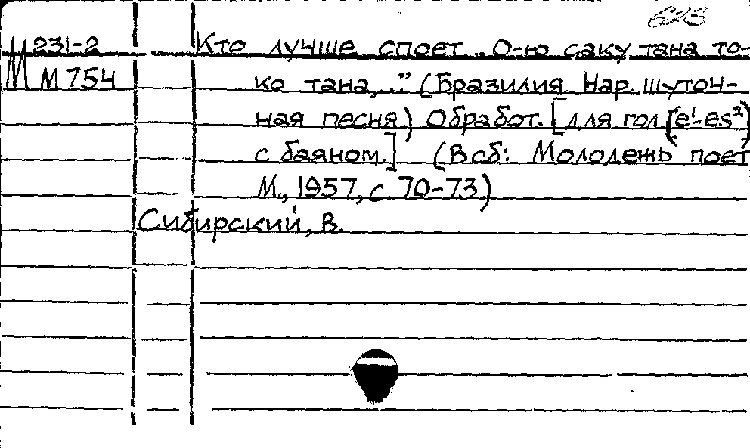 М 231-2 Кто лучше споет „О-ю саку тана то-
М 754 ко тана,.." (Бразилия Нар. шуточ-
ная песня) Обработ. [для гол (e¹-es²)
с баяном.] (В сб: Молодежь поет
М., 1957, с. 70-73)
Сибирский, В.